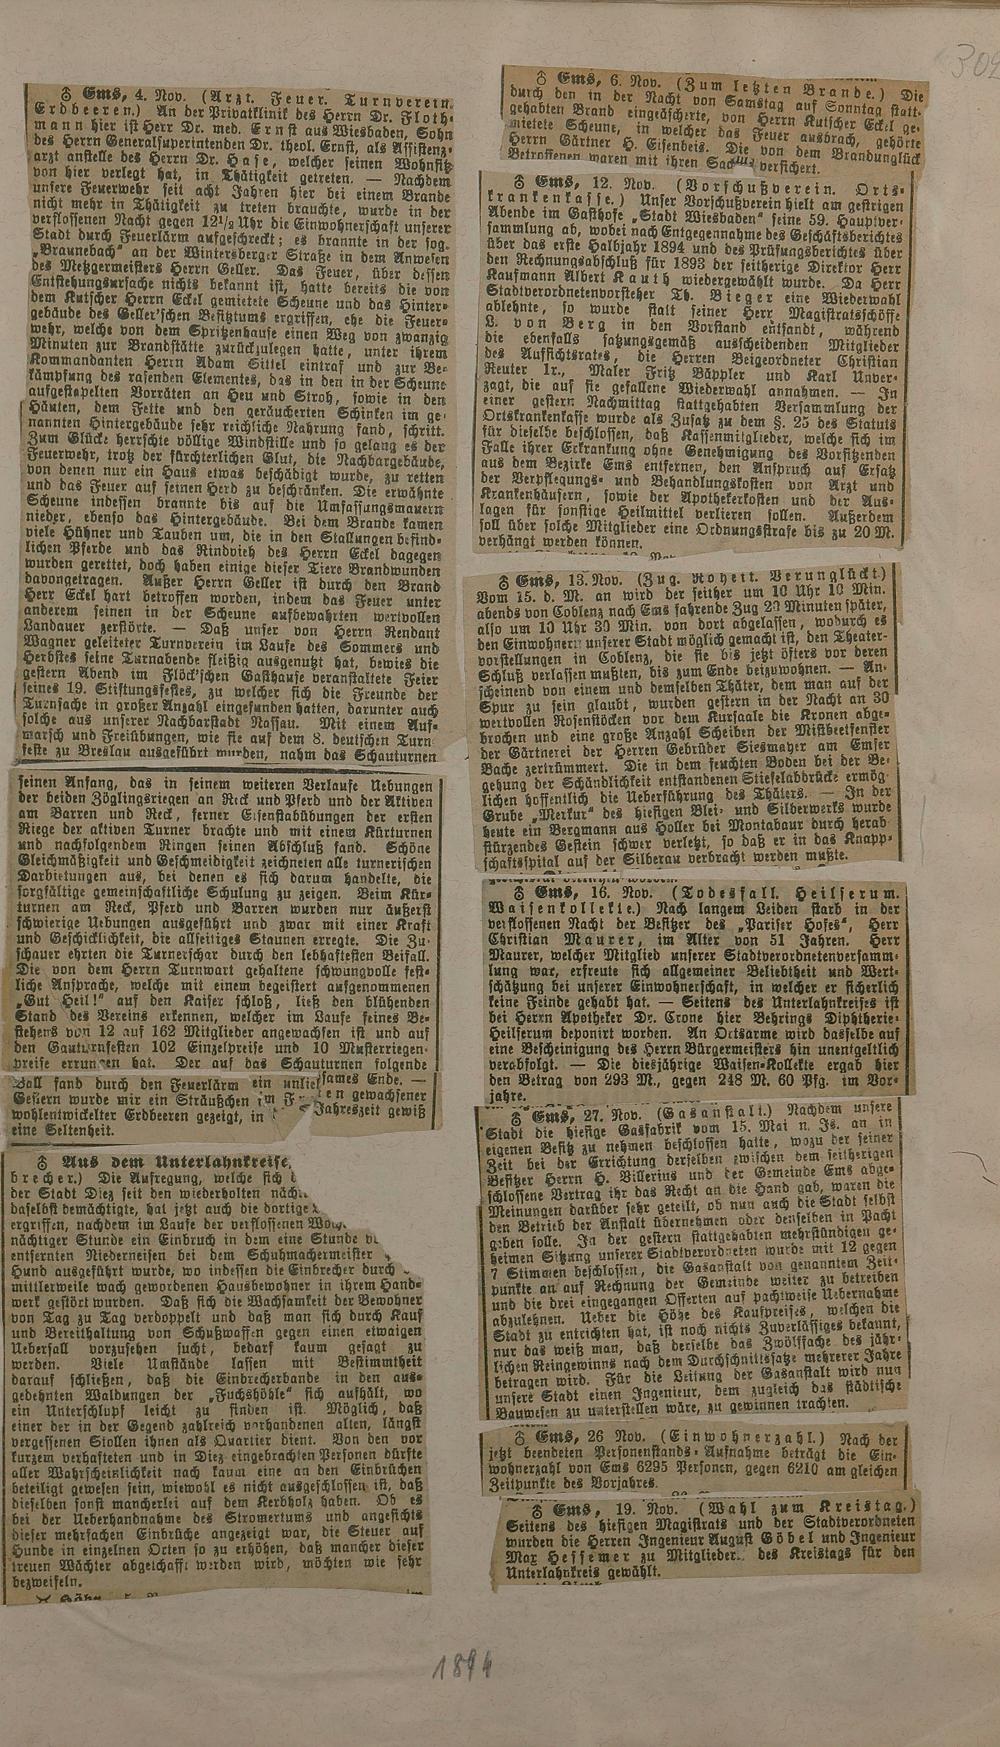 309
♁ Ems, 4. Nov. (Arzt. Feuer. Turnverein.
Erdbeeren.) An der Privatklinik des Herrn Dr. Floth-
mann hier ist Herr Dr. med. Ernst aus Wiesbaden, Sohn
des Herrn Generalsuperintenden Dr. theol. Ernst, als Assistenz-
arzt anstelle des Herrn Dr. Hase, welcher seinen Wohnsitz
von hier verlegt hat, in Thätigkeit getreten. — Nachdem
unsere Feuerwehr seit acht Jahren hier bei einem Brande
nicht mehr in Thätigkeit zu treten brauchte, wurde in der
verflossenen Nacht gegen 12½ Uhr die Einwohnerschaft unserer
Stadt durch Feuerlärm aufgeschreckt; es brannte in der sog.
„Braunebach“ an der Wintersberger Straße in dem Anwesen
des Metzgermeisters Herrn Geller. Das Feuer, über dessen
Entstehungsursache nichts bekannt ist, hatte bereits die von
dem Kutscher Herrn Eckel gemietete Scheune und das Hinter-
gebäude des Geller'schen Besitztums ergriffen, ehe die Feuer-
wehr, welche von dem Spritzenhause einen Weg von zwanzig
Minuten zur Brandstätte zurückzulegen hatte, unter ihrem
Kommandanten Herrn Adam Sittel eintraf und zur Be-
kämpfung des rasenden Elementes, das in den in der Scheune
aufgestapelten Vorräten an Heu und Stroh, sowie in den
Häuten, dem Fette und den geräucherten Schinken im ge-
nannten Hintergebäude sehr reichliche Nahrung fand, schritt.
Zum Glücke herrschte völlige Windstille und so gelang es der
Feuerwehr, trotz der fürchterlichen Glut, die Nachbargebäude,
von denen nur ein Haus etwas beschädigt wurde, zu retten
und das Feuer auf seinen Herd zu beschränken. Die erwähnte
Scheune indessen brannte bis auf die Umfassungsmauern
nieder, ebenso das Hintergebäude. Bei dem Brande kamen
viele Hühner und Tauben um, die in den Stallungen befind-
lichen Pferde und das Rindvieh des Herrn Eckel dagegen
wurden gerettet, doch haben einige dieser Tiere Brandwunden
davongetragen. Außer Herrn Geller ist durch den Brand
Herr Eckel hart betroffen worden, indem das Feuer unter
anderem seinen in der Scheune aufbewahrten wertvollen
Landauer zerstörte. — Daß unser von Herrn Rendant
Wagner geleiteter Turnverein im Laufe des Sommers und
Herbstes seine Turnabende fleißig ausgenutzt hat, bewies die
gestern Abend im Flöck'schen Gasthause veranstaltete Feier
seines 19. Stiftungsfestes, zu welcher sich die Freunde der
Turnsache in großer Anzahl eingefunden hatten, darunter auch
solche aus unserer Nachbarstadt Nassau. Mit einem Auf-
marsch und Freiübungen, wie sie auf dem 8. deutschen Turn
feste zu Breslau ausgeführt wurden, nahm das Schauturnen
seinen Anfang, das in seinem weiteren Verlaufe Uebungen
der beiden Zöglingsriegen an Reck und Pferd und der Aktiven
am Barren und Reck, ferner Eisenstabübungen der ersten
Riege der aktiven Turner brachte und mit einem Kürturnen
und nachfolgendem Ringen seinen Abschluß fand. Schöne
Gleichmäßigkeit und Geschmeidigkeit zeichneten alle turnerischen
Darbietungen aus, bei denen es sich darum handelte, die
sorgfältige gemeinschaftliche Schulung zu zeigen. Beim Kür-
turnen am Reck, Pferd und Barren wurden nur äußerst
schwierige Uebungen ausgeführt und zwar mit einer Kraft
und Geschicklichkeit, die allseitiges Staunen erregte. Die Zu-
schauer ehrten die Turnerschar durch den lebhaftesten Beifall.
Die von dem Herrn Turnwart gehaltene schwungvolle fest-
liche Ansprache, welche mit einem begeistert aufgenommenen
„Gut Heil!“ auf den Kaiser schloß, ließ den blühenden
Stand des Vereins erkennen, welcher im Laufe seines Be-
stehens von 12 auf 162 Mitglieder angewachsen ist und auf
den Gauturnfesten 102 Einzelpreise und 10 Musterriegen-
preise errungen hat. Der auf das Schauturnen folgende
Ball fand durch den Feuerlärm ein unliebsames Ende. —
Gestern wurde mir ein Sträußchen im gewachsener
wohlentwickelter Erdbeeren gezeigt, in Jahreszeit gewiß
eine Seltenheit.
♁ Aus dem Unterlahnkreise,
brecher.) Die Aufregung, welche sich
der Stadt Diez seit den wiederholten
daselbst bemächtigte, hat jetzt auch die dortige
ergriffen, nachdem im Laufe der verflossenen
nächtiger Stunde ein Einbruch in dem eine Stunde
entfernten Niederneisen bei dem Schuhmachermeister
Hund ausgeführt wurde, wo indessen die Einbrecher durch
mittlerweile wach gewordenen Hausbewohner in ihrem Hand-
werk gestört wurden. Daß sich die Wachsamkeit der Bewohner
von Tag zu Tag verdoppelt und daß man sich durch Kauf
und Bereithaltung von Schußwaffen gegen einen etwaigen
Ueberfall vorzusehen sucht, bedarf kaum gesagt zu
werden. Viele Umstände lassen mit Bestimmtheit
darauf schließen, daß die Einbrecherbande in den aus-
gedehnten Waldungen der „Fuchshöhle“ sich aufhält, wo
ein Unterschlupf leicht zu finden ist. Möglich, daß
einer der in der Gegend zahlreich vorhandenen alten, längst
vergessenen Stollen ihnen als Quartier dient. Von den vor
kurzem verhafteten und in Diez eingebrachten Personen dürfte
aller Wahrscheinlichkeit nach kaum eine an den Einbrüchen
beteiligt gewesen sein, wiewohl es nicht ausgeschlossen ist, daß
dieselben sonst mancherlei auf dem Kerbholz haben. Ob es
bei der Ueberhandnahme des Stromertums und angesichts
dieser mehrfachen Einbrüche angezeigt war, die Steuer auf
Hunde in einzelnen Orten so zu erhöhen, daß mancher dieser
treuen Wächter abgeschafft werden wird, möchten wie sehr
bezweifeln.
♁ Ems, 6. Nov. (Zum letzten Brande.) Die
durch den in der Nacht von Samstag auf Sonntag statt-
gehabten Brand eingeäscherte, von Herrn Kutscher Eckel ge-
mietete Scheune, in welcher das Feuer ausbrach, gehörte
Herrn Gärtner H. Eisenbeis. Die von dem Brandunglück
Betroffenen waren mit ihren Sachen versichert.
♁ Ems, 12. Nov. (Vorschußverein. Orts-
krankenkasse.) Unser Vorschußverein hielt am gestrigen
Abende im Gasthofe „Stadt Wiesbaden“ seine 59. Hauptver-
sammlung ab, wobei nach Entgegennahme des Geschäftsberichtes
über das erste Halbjahr 1894 und des Prüfungsberichtes über
den Rechnungsabschluß für 1893 der seitherige Direktor Herr
Kaufmann Albert Kauth wiedergewählt wurde. Da Herr
Stadtverordnetenvorsteher Th. Bieger eine Wiederwahl
ablehnte, so wurde statt seiner Herr Magistratsschöffe
L. von Berg in den Vorstand entsandt, während
die ebenfalls satzungsgemäß ausscheidenden Mitglieder
des Aufsichtsrates, die Herren Beigeordneter Christian
Reuter 1r., Maler Fritz Bäppler und Karl Unver-
zagt, die auf sie gefallene Wiederwahl annahmen. — In
einer gestern Nachmittag stattgehabten Versammlung der
Ortskrankenkasse wurde als Zusatz zu dem §. 25 des Statuts
für dieselbe beschlossen, daß Kassenmitglieder, welche sich im
Falle ihrer Erkrankung ohne Genehmigung des Vorsitzenden
aus dem Bezirke Ems entfernen, den Anspruch auf Ersatz
der Verpflegungs- und Behandlungskosten von Arzt und
Krankenhäusern, sowie der Apothekerkosten und der Aus-
lagen für sonstige Heilmittel verlieren sollen. Außerdem
soll über solche Mitglieder eine Ordnungsstrafe bis zu 20 M.
verhängt werden können.
♁ Ems, 13. Nov. (Zug. Roheit. Verunglückt.)
Vom 15. d. M. an wird der seither um 10 Uhr 10 Min.
abends von Coblenz nach Ems fahrende Zug 20 Minuten später,
also um 10 Uhr 30 Min. von dort abgelassen, wodurch es
den Einwohnern unserer Stadt möglich gemacht ist, den Theater-
vorstellungen in Coblenz, die sie bis jetzt öfters vor deren
Schluß verlassen mußten, bis zum Ende beizuwohnen. — An-
scheinend von einem und demselben Thäter, dem man auf der
Spur zu sein glaubt, wurden gestern in der Nacht an 30
wertvollen Rosenstöcken vor dem Kursaale die Kronen abge-
brochen und eine große Anzahl Scheiben der Mistbeetfenster
der Gärtnerei der Herren Gebrüder Siesmayer am Emser
Bache zertrümmert. Die in dem feuchten Boden bei der Be-
gehung der Schändlichkeit entstandenen Stiefelabdrücke ermög-
lichen hoffentlich die Ueberführung des Thäters. — In der
Grube „Merkur“ des hiesigen Blei- und Silberwerks wurde
heute ein Bergmann aus Holler bei Montabaur durch herab-
stürzendes Gestein schwer verletzt, so daß er in das Knapp-
schaftsspital auf der Silberau verbracht werden mußte.
♁ Ems, 16. Nov. (Todesfall. Heilserum.
Waisenkollekte.) Nach langem Leiden starb in der
verflossenen Nacht der Besitzer des „Pariser Hofes“, Herr
Christian Maurer, im Alter von 51 Jahren. Herr
Maurer, welcher Mitglied unserer Stadtverordnetenversamm-
lung war, erfreute sich allgemeiner Beliebtheit und Wert-
schätzung bei unserer Einwohnerschaft, in welcher er sicherlich
keine Feinde gehabt hat. — Seitens des Unterlahnkreises ist
bei Herrn Apotheker Dr. Crone hier Behrings Diphtherie-
Heilserum deponirt worden. An Ortsarme wird dasselbe auf
eine Bescheinigung des Herrn Bürgermeisters hin unentgeltlich
verabfolgt. — Die diesjährige Waisen-Kollekte ergab hier
den Betrag von 293 M., gegen 248 M. 60 Pfg. im Vor-
jahre.
♁ Ems, 27. Nov. (Gasanstalt.) Nachdem unsere
Stadt die hiesige Gasfabrik vom 15. Mai n. Js. an in
eigenen Besitz zu nehmen beschlossen hatte, wozu der seiner
Zeit bei der Errichtung derselben zwischen dem seitherigen
Besitzer Herrn H. Billerius und der Gemeinde Ems abge-
schlossene Vertrag ihr das Recht an die Hand gab, waren die
Meinungen darüber sehr geteilt, ob nun auch die Stadt selbst
den Betrieb der Anstalt übernehmen oder denselben in Pacht
geben solle. In der gestern stattgehabten mehrstündigen ge-
heimen Sitzung unserer Stadtverordneten wurde mit 12 gegen
7 Stimmen beschlossen, die Gasanstalt von genanntem Zeit-
punkte an auf Rechnung der Gemeinde weiter zu betreiben
und die drei eingegangen Offerten auf pachtweise Uebernahme
abzulehnen. Ueber die Höhe des Kaufpreises, welchen die
Stadt zu entrichten hat, ist noch nichts Zuverlässiges bekannt,
nur das weiß man, daß derselbe das Zwölffache des jähr-
lichen Reingewinns nach dem Durchschnittssatze mehrerer Jahre
betragen wird. Für die Leitung der Gasanstalt wird nun
unsere Stadt einen Ingenieur, dem zugleich das städtische
Bauwesen zu unterstellen wäre, zu gewinnen trachten.
♁ Ems, 26 Nov. (Einwohnerzahl.) Nach der
jetzt beendeten Personenstands-Aufnahme beträgt die Ein-
wohnerzahl von Ems 6295 Personen, gegen 6210 am gleichen
Zeitpunkte des Vorjahres.
♁ Ems, 19. Nov. (Wahl zum Kreistag.)
Seitens des hiesigen Magistrats und der Stadtverordneten
wurden die Herren Ingenieur August Göbel und Ingenieur
Max Hessemer zu Mitgliedern des Kreistags für den
Unterlahnkreis gewählt.
1894